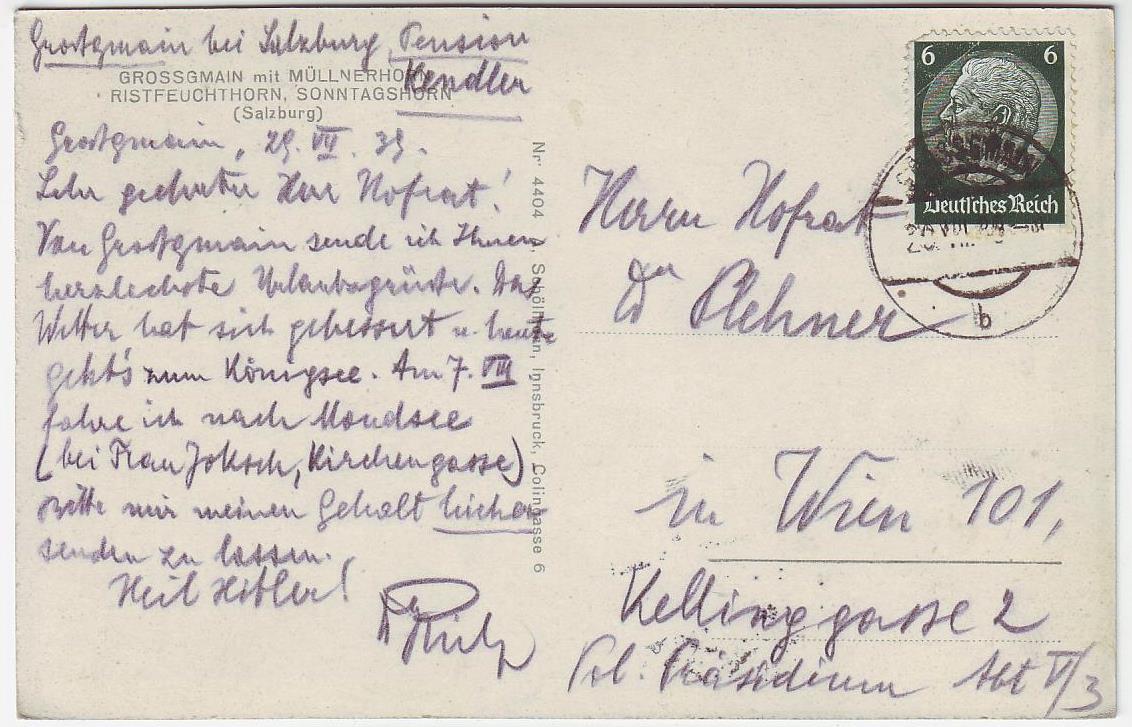 Grossgmain bei Salzburg, Pension
Kendler
GROSSGMAIN mit MÜLLNERHORN
RISTFEUCHTHORN, SONNTAGSHORN
(Salzburg)
Grossgmain, 29. VII. 39.
Sehr geehrter Herr Hofrat!
Von Grossgmain sende ich Ihnen
herzlichste Urlaubsgrüsse. Das
Wetter hat sich gebessert u heute
geht's zum Königsee. Am 7. VIII
fahre ich nach Mondsee
(bei Frau Joksch, Kirchengasse)
bitte mir meinen Gehalt hieher
senden zu lassen.
Heil Hitler!
Dr
Nr. 4404 Schöllhorn, Innsbruck, Colingasse 6
6 6
Deutsches Reich
GROSSGMAIN
b
Herrn Hofrat
Dr Plehner
in Wien 101,
Kellinggasse 2
Pol. Präsidium Abt V/3